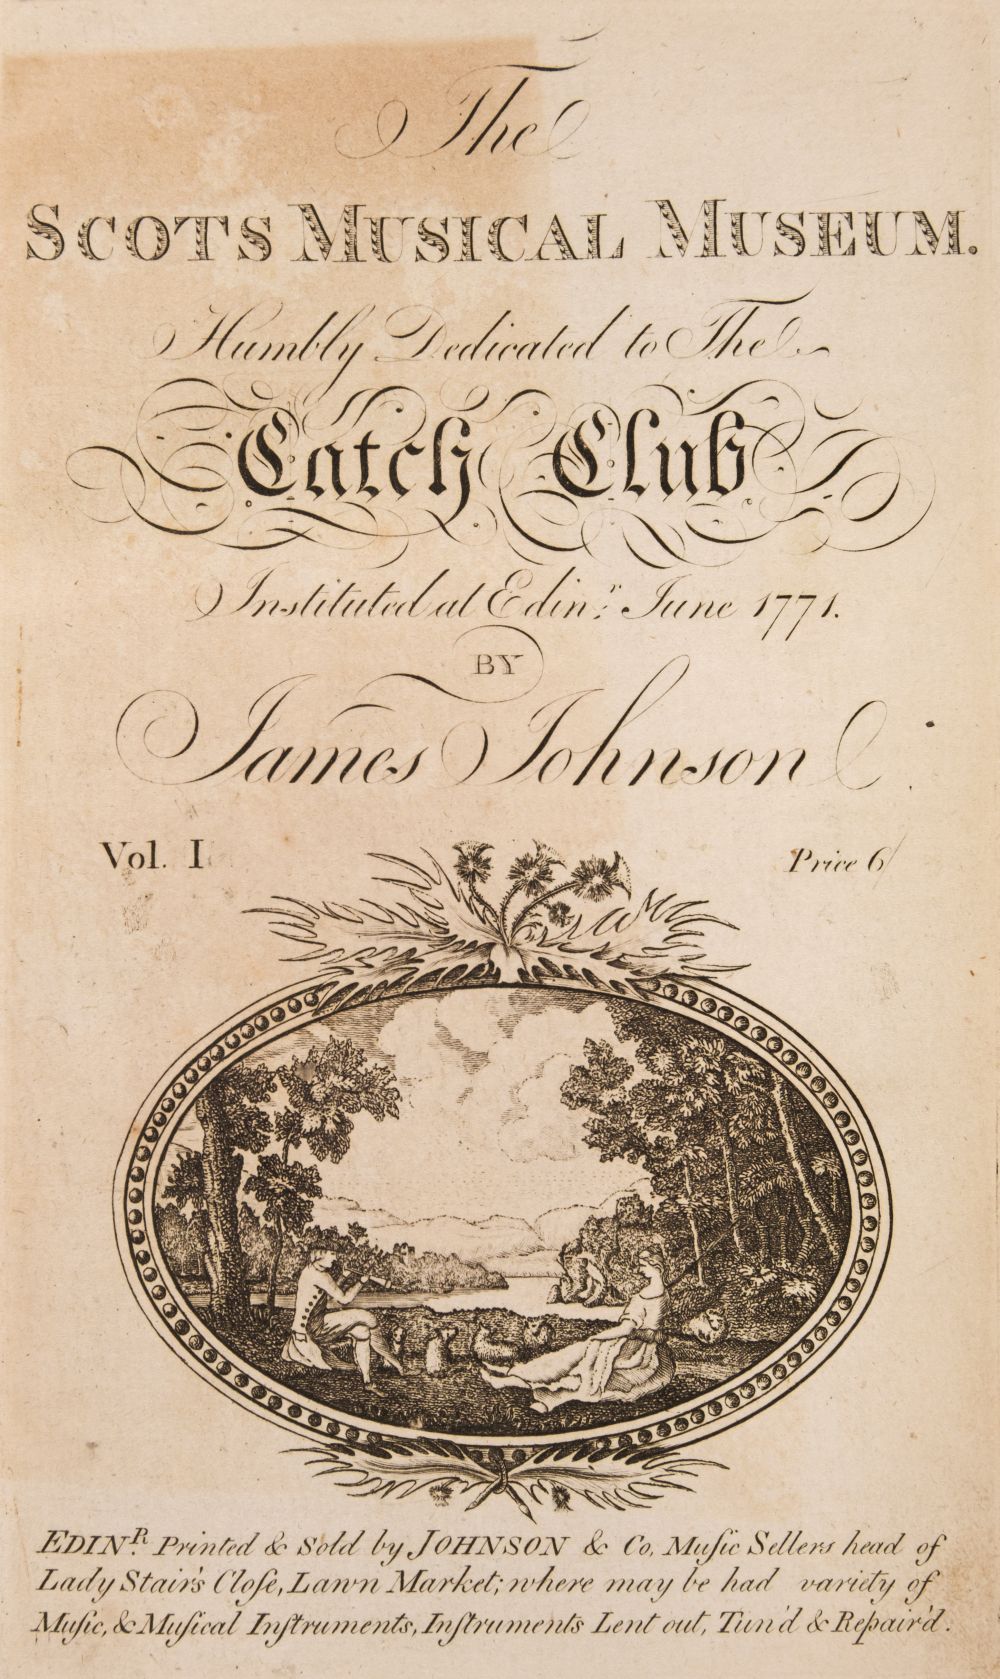 The
SCOTS MUSICAL MUSEUM.
Humbly Dedicated to The
Catch Club
Instituted at Edinr. June 1771.
BY
James Johnson
Vol. I Price 6/
EDINR. Printed & Sold by JOHNSON & Co. Muſic Sellers head of
Lady Stair's Cloſe, Lawn Market; where may be had variety of
Muſic, & Muſical Inſtruments, Inſtruments Lent out, Tun'd & Repair'd.